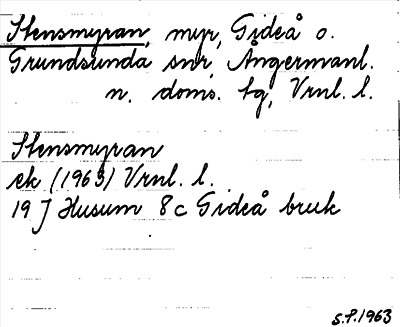 Stensmyran, myr, Gideå o.
Grundsunda snr, Ångermanl.
n. doms. tg, Vrnl. l.
Stensmyran
ek (1963) Vrnl. l.
19 J Husum 8c Gideå bruk
S.P. 1963